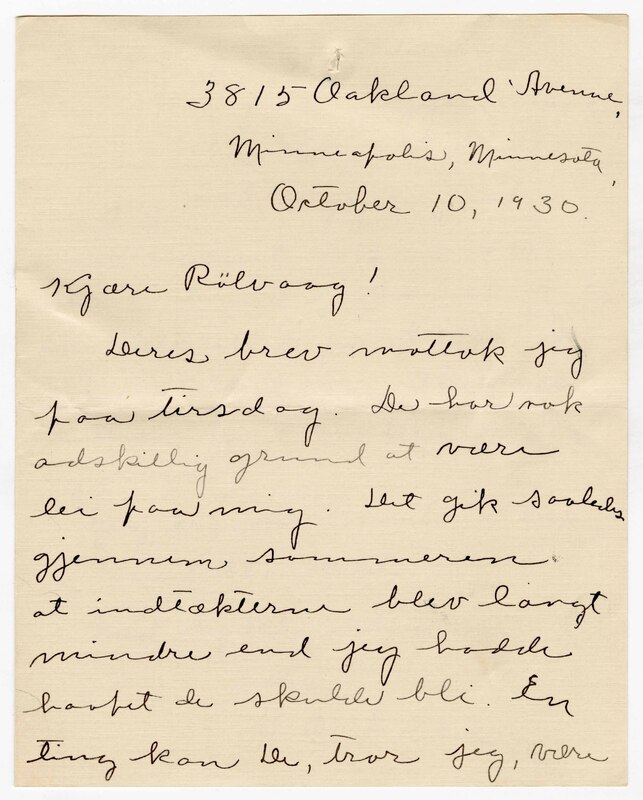 3815 Oakland Avenue,
Minneapolis, Minnesota,
October 10, 1930.
Kjære Rölvaag!
Deres brev mottok jeg
paa tirsdag. De har nok
adskillig grund at være
lei paa mig. Det gik saaledes
gjennem sommeren
at indtækterne blev langt
mindre end jeg hadde
haapet de skulde bli. En
ting kan De, tror jeg, være